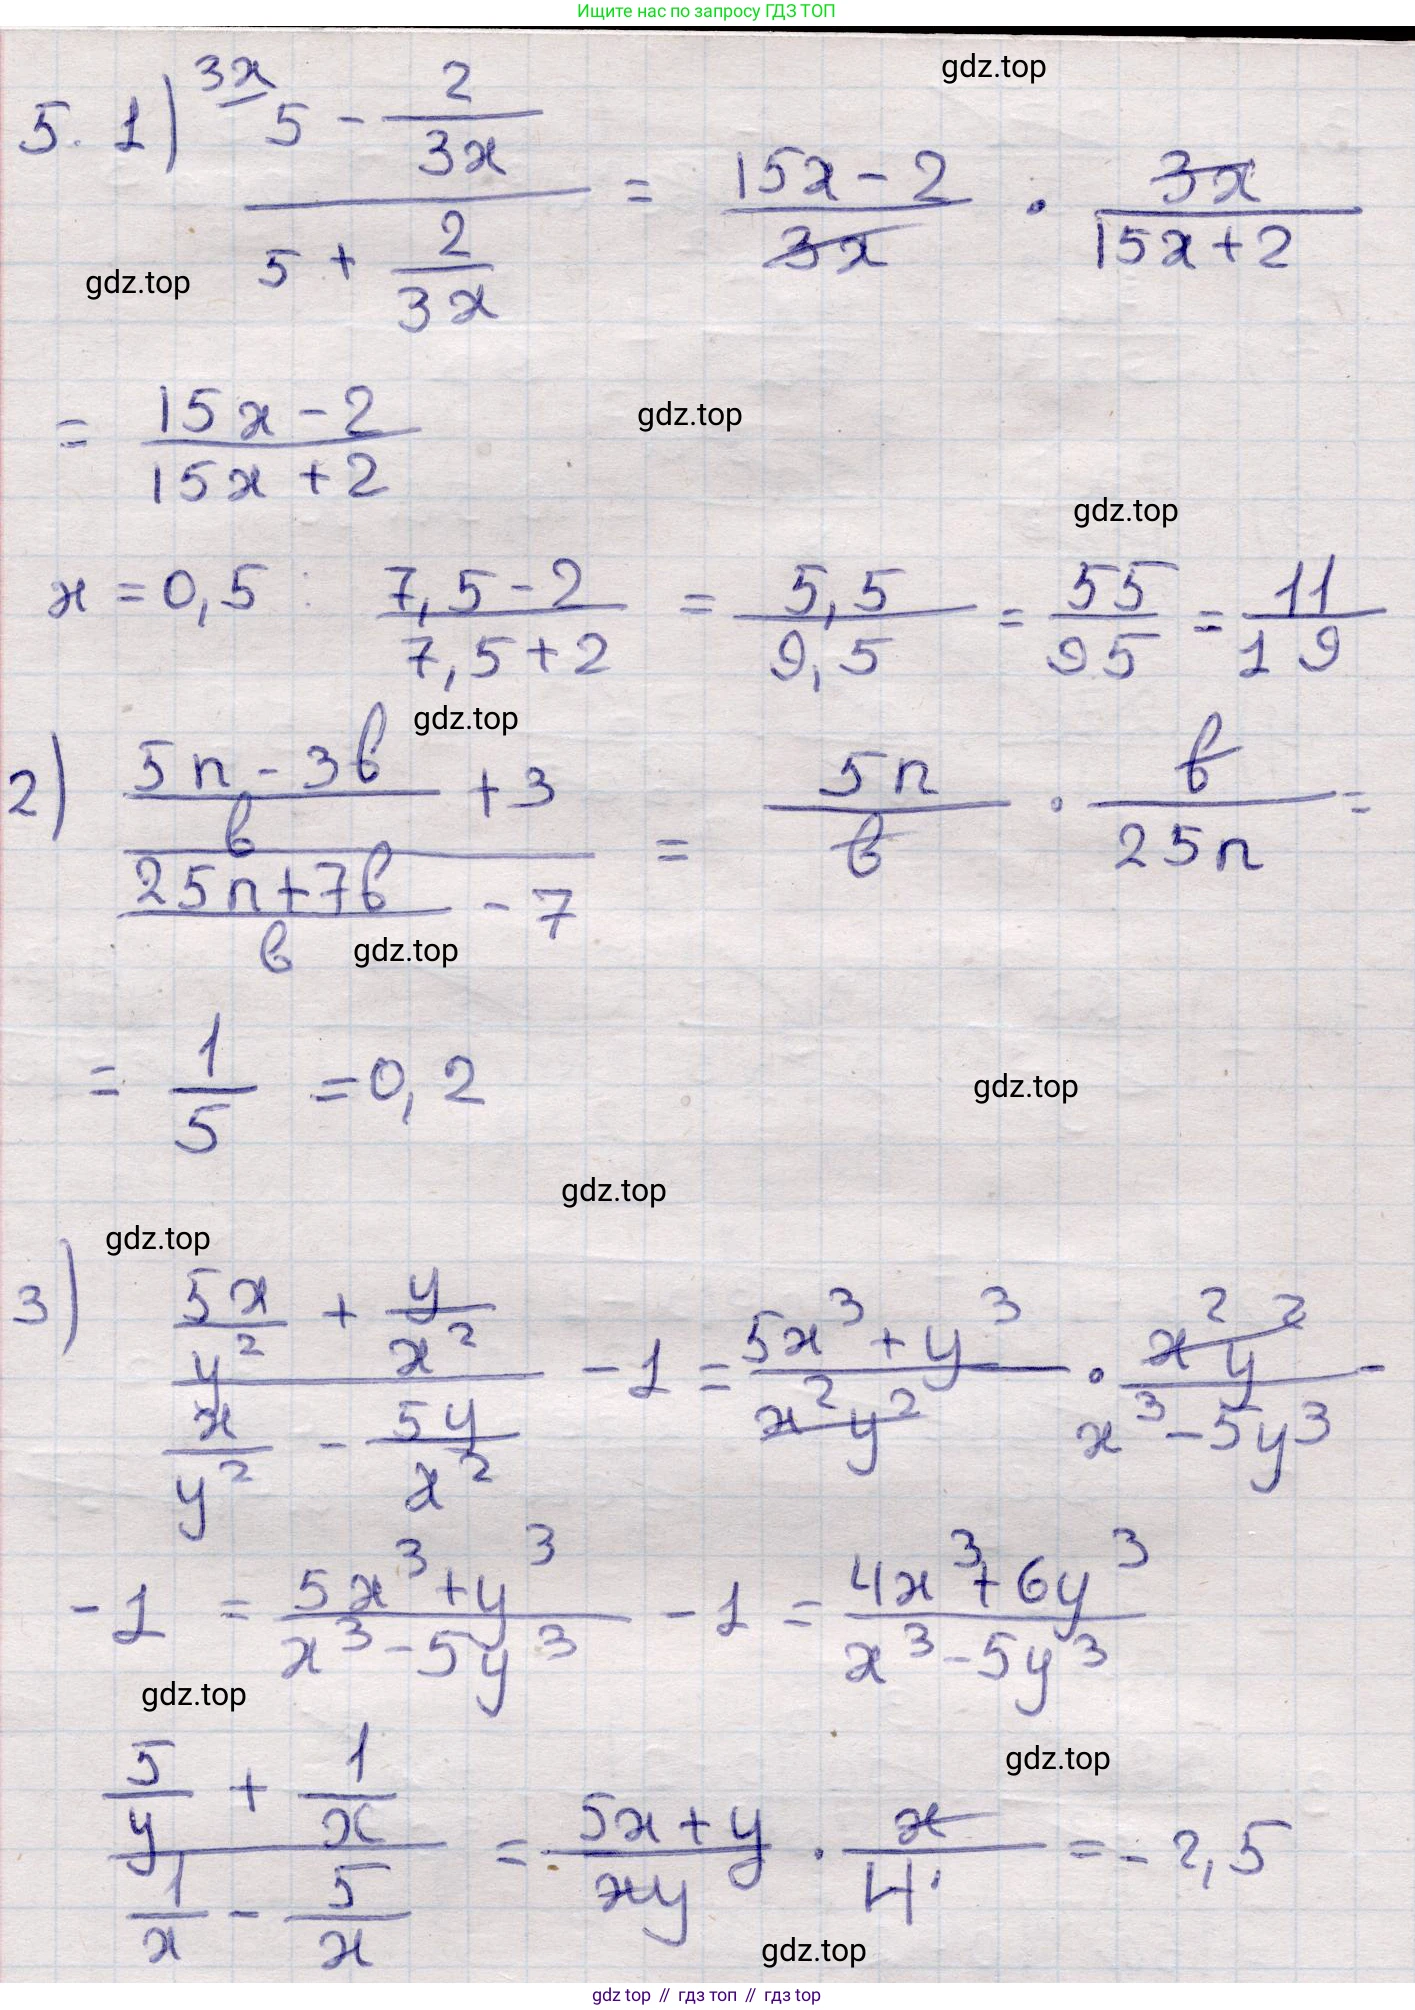 Ищите нас по запросу ГДЗ ТОП
gdz.top
5. 1) 3x 5 - 2/3x / 5 + 2/3x = 15x - 2 / 3x · 3x / 15x + 2
gdz.top
= 15x - 2 / 15x + 2
gdz.top
gdz.top
x = 0,5 : 7,5 - 2 / 7,5 + 2 = 5,5 / 9,5 = 55 / 95 = 11 / 19
gdz.top
2) 5n - 3b / b + 3 / 25n + 7b / b - 7 = 5n / b · b / 25n =
gdz.top
= 1/5 = 0,2
gdz.top
gdz.top
gdz.top
3) 5x/y² + y/x² / x/y² - 5y/x² - 1 = 5x³ + y³ / x²y² · x²y² / x³ - 5y³ -
- 1 = 5x³ + y³ / x³ - 5y³ - 1 = 4x³ + 6y³ / x³ - 5y³
gdz.top
gdz.top
5/y + 1/x / 1/x - 5/x = 5x + y / xy · x / 4 = - 2,5
gdz.top
gdz.top // гдз топ // gdz top